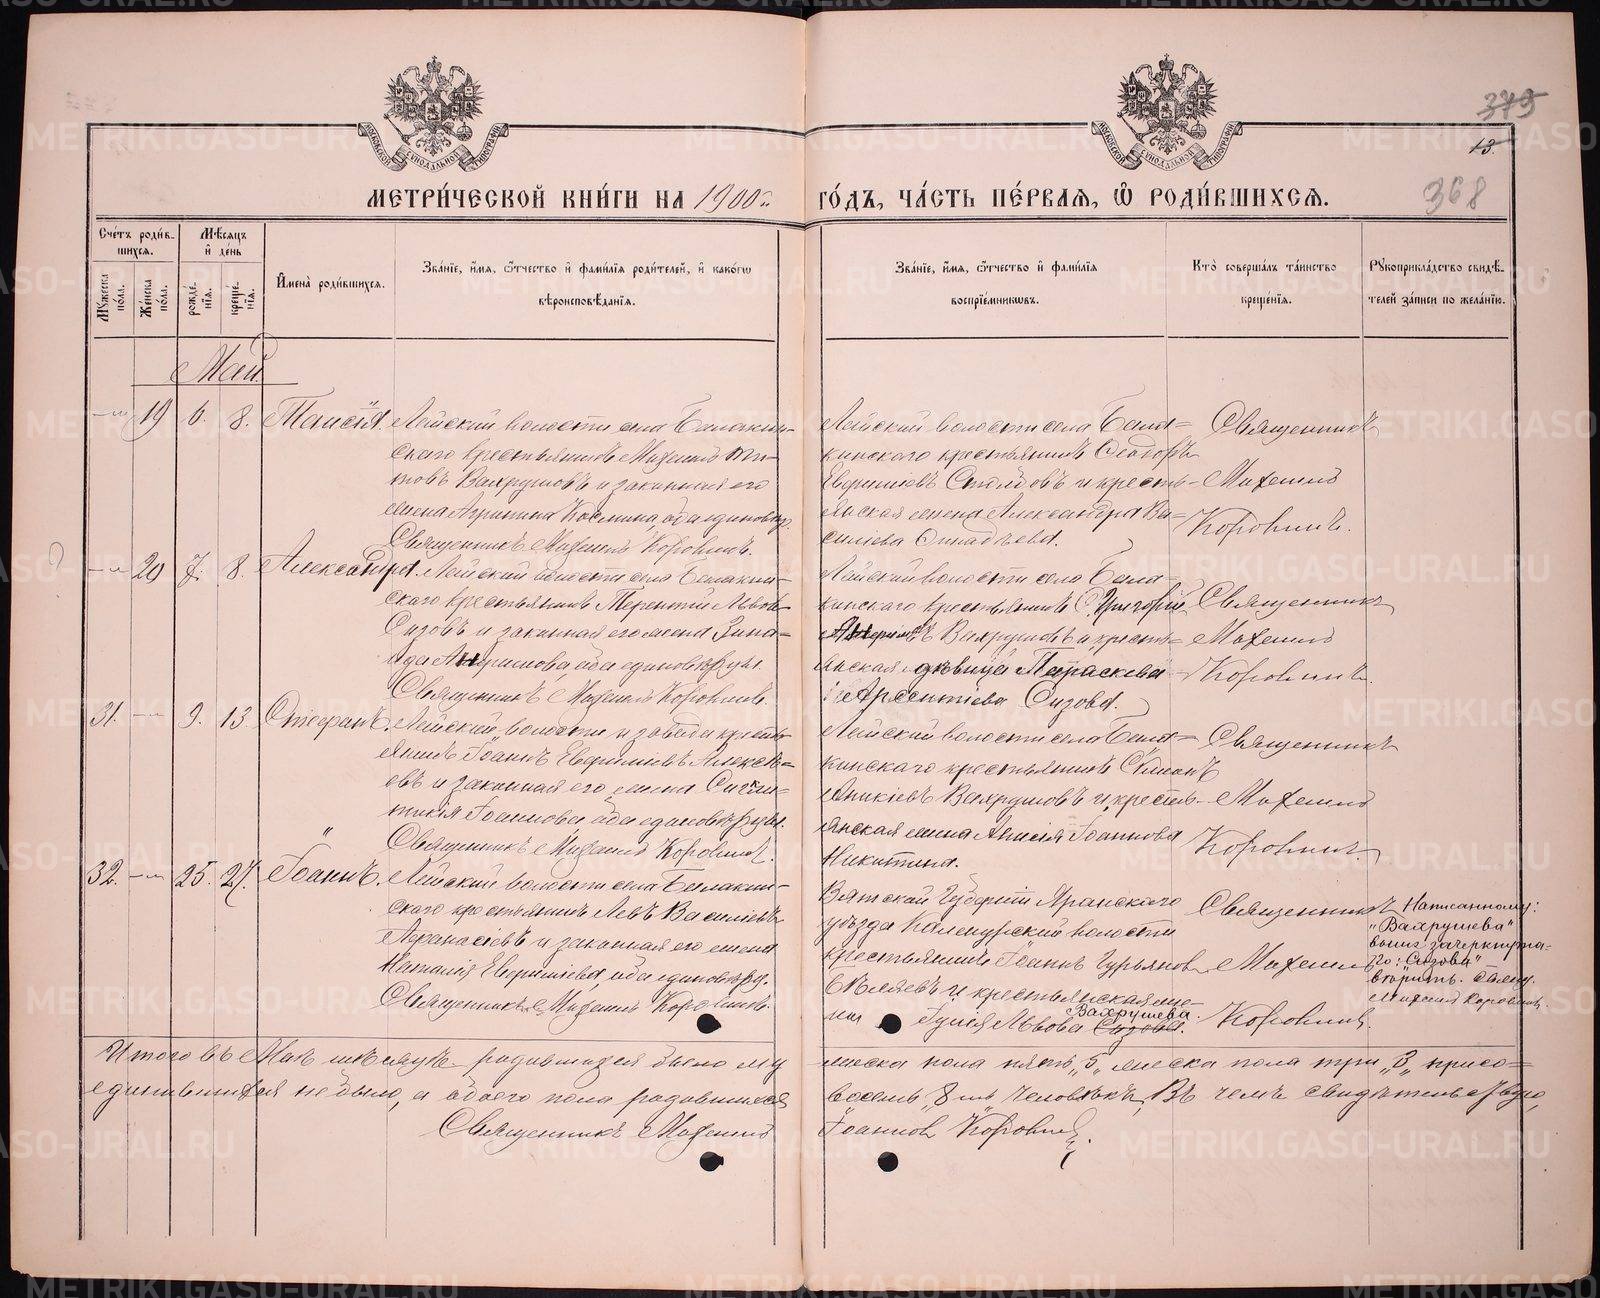 379
13.
368
МЕТРИ́ЧЕСКОЙ КНИ́ГИ НА 1900й ГО́ДЪ, ЧА́СТЬ ПЕ́РВАЯ, Ѽ РОДИ́ВШИХСЯ.
Сче́тъ роди́в-
шихся.
Мꙋжеска по́ла.
Же́нска по́ла.
Мѣ́сяцъ и҆ де́нь
рожде́-
нїя.
креще́-
нїя.
И҆мена̀ роди́вшихся.
Зва́нїе, и҆́мя, ѻ҆́тчество и҆ фами́лїя роди́телей, и҆ како́гѡ
вѣроисповѣ́данїя.
Зва́нїе, и҆́мя, ѻ҆́тчество и҆ фами́лїя
воспрїе́мниковъ.
Кто̀ соверша́лъ та́инство
креще́нїя.
Рꙋкоприкла́дство свидѣ́-
телей за́писи по жела́нїю.
Май
— 19 6. 8. Таисія.
Лайской волости села Балакин-
скаго крестьянинъ Михаилъ Ти-
товъ Вахрушовъ и законная его
жена Агрипина Космина, оба единовѣр.
Священникъ Михаилъ Коровинъ.
Лайской волости села Бала-
кинскаго крестьянинъ Ѳеодоръ
Евфимовъ и кресть-
янская жена Александра Ва-
сильева
Священникъ
Михаилъ
Коровинъ.
— 20 7. 8. Александра.
Лайской волости села Балакин-
скаго крестьянинъ Терентій Львовъ
Сизовъ и законная его жена Зина-
ида оба единовѣрцы.
Священникъ Михаилъ Коровинъ.
Лайской волости села Бала-
кинскаго крестьянинъ Григорій
Вахрушовъ и кресть-
янская дѣвица Параскева
Арсентіева Сизова.
Священникъ
Михаилъ
Коровинъ.
31. — 9. 13. Стефанъ.
Лайской волости и завода кресть-
янинъ Іоаннъ Евфиміевъ Алексѣ-
евъ и законная его жена Сигкли-
тикія Іоаннова, оба единовѣрцы.
Священникъ Михаилъ Коровинъ.
Лайской волости села Бала-
кинскаго крестьянинъ Симонъ
Іоникіевъ Вахрушовъ и кресть-
янская жена Анисія Іоаннова
Никитина.
Священникъ
Михаилъ
Коровинъ.
32. — 25. 27. Іоаннъ.
Лайской волости села Балакин-
скаго крестьянинъ Левъ Василіевъ
Аѳанасіевъ и законная его жена
Наталія Евфиміева, оба единовѣр.
Священникъ Михаилъ Коровинъ.
Вятской Губерніи Яранскаго
уѣзда волости
крестьянинъ Іоаннъ Гурьяновъ
Бѣляевъ и крестьянская же-
на Гулія Львова Сизова. Вахрушева.
Священникъ
Михаилъ
Коровинъ.
Написанному:
"Вахрушева"
выше зачеркнута-
го: "Сизова"
вѣрить. Свящ.
Михаилъ Коровинъ.
Итого въ Маѣ мѣсяцѣ родившихся было му жеска пола пять "5" женска пола три "3" присо-
единившихся не было, а обоего пола родившихся восемь "8" человѣкъ, Въ чемъ свидѣтельствую,
Священникъ Михаилъ Іоанновъ Коровинъ.
METRIKI.GASO-URAL.RU